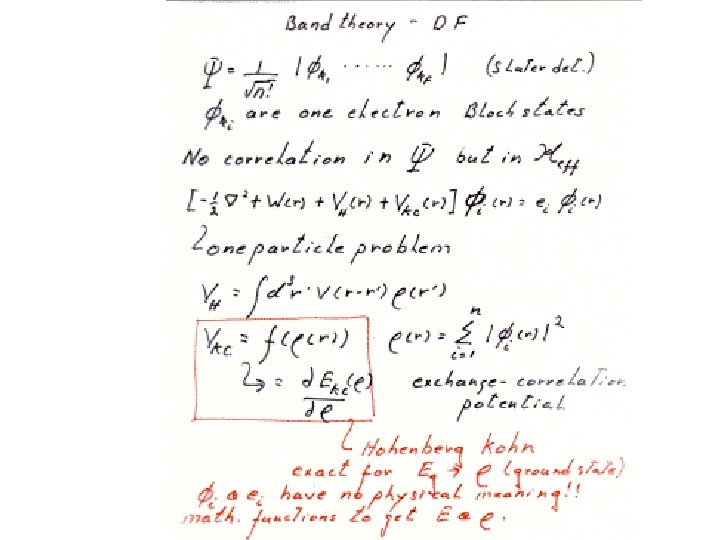 Band theory - DF
Ψ = 1/√n! |ϕk₁ ...... ϕkF| (Slater det.)
ϕkᵢ are one electron Bloch states
No correlation in Ψ but in ℋeff
[-½ ∇² + W(r) + V_H(r) + V_xc(r)] ϕᵢ(r) = eᵢ ϕᵢ(r)
one particle problem
V_H = ∫d³r' V(r-r') ρ(r')
V_xc = f(ρ(r)) ρ(r) = Σ_{i=1}^{n} |ϕᵢ(r)|²
↳ = dE_xc(ρ)/dρ exchange-correlation
potential
Hohenberg Kohn
exact for E_g → ρ (ground state)
ϕᵢ & eᵢ have no physical meaning!!
math. functions to get E & ρ.